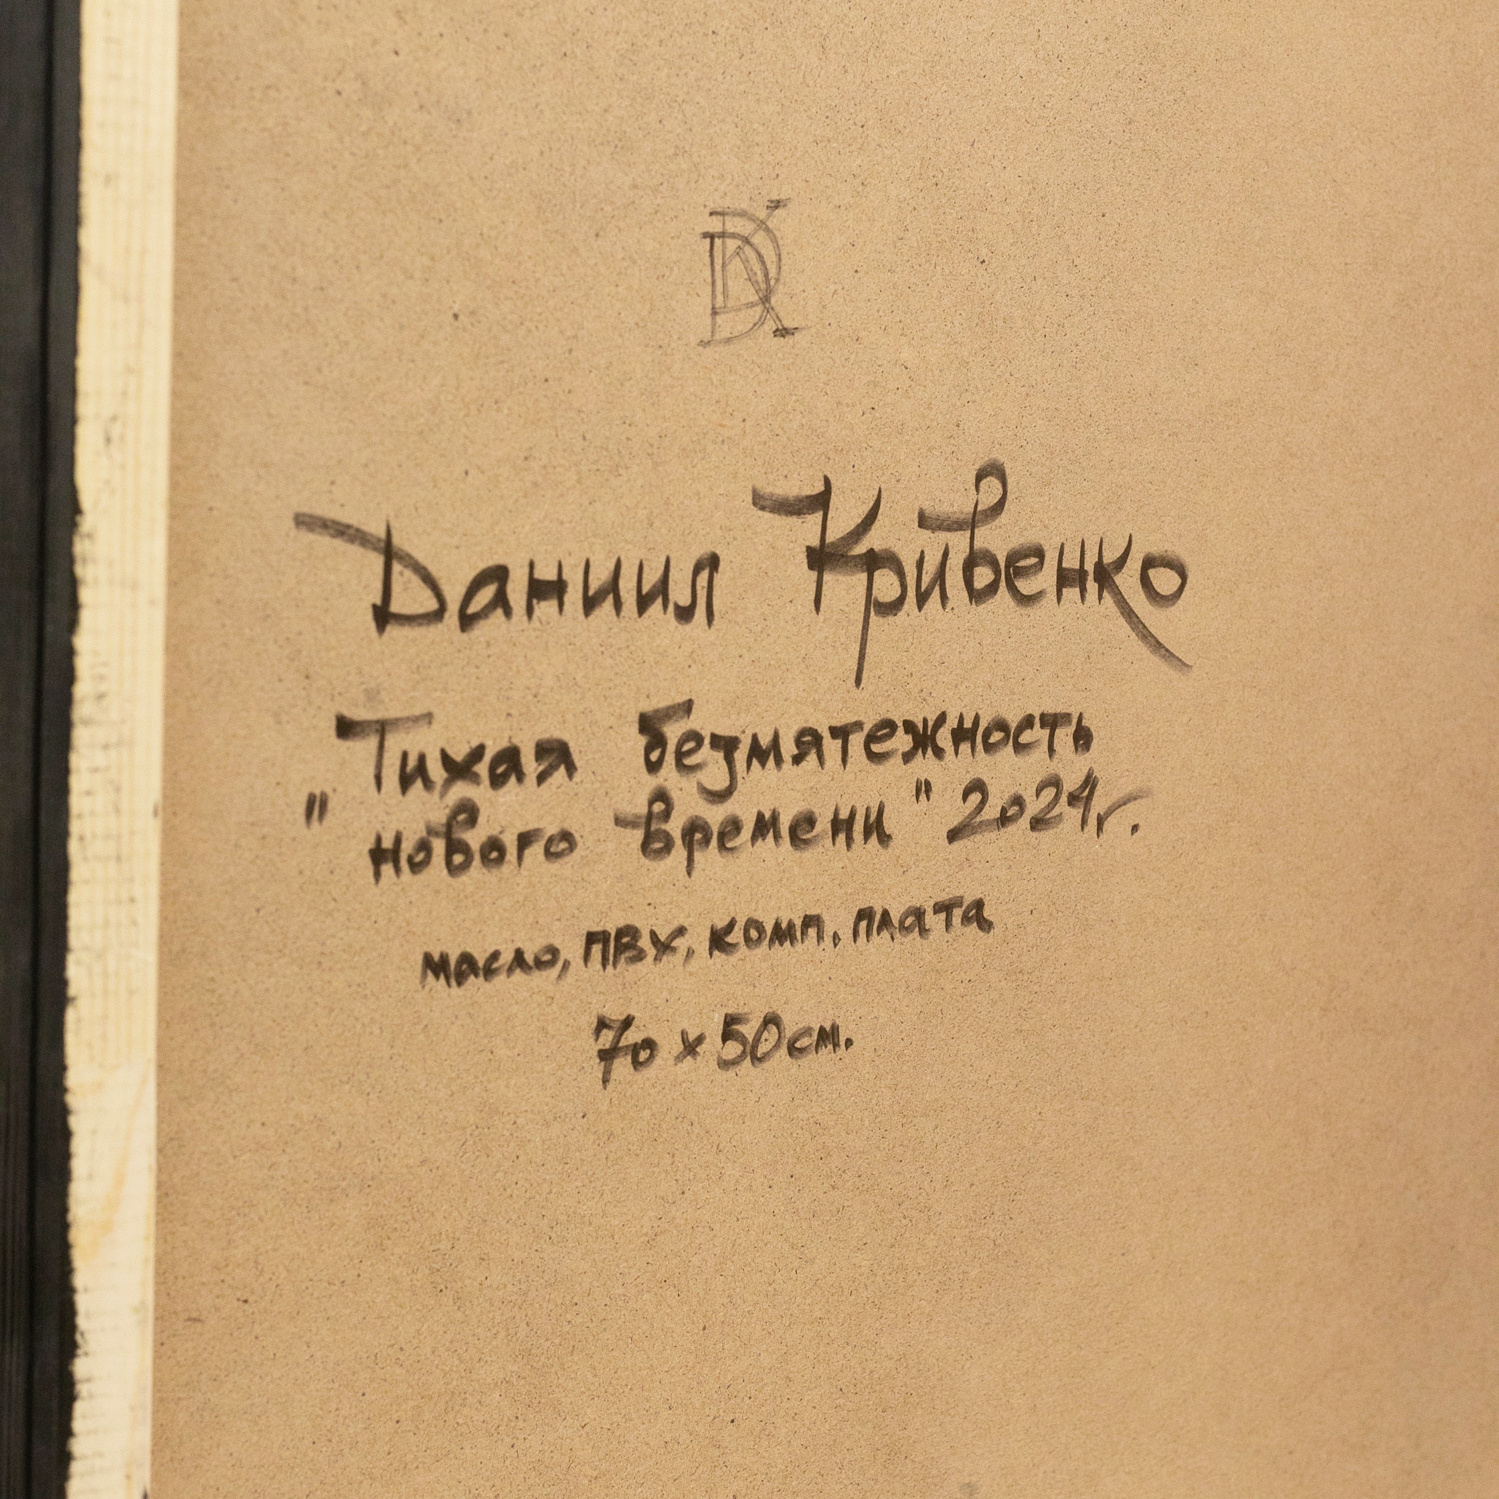 DK
Даниил Кривенко
Тихая безмятежность
" нового времени" 2024г.
масло, ПВХ, комп. плата
70 х 50см.